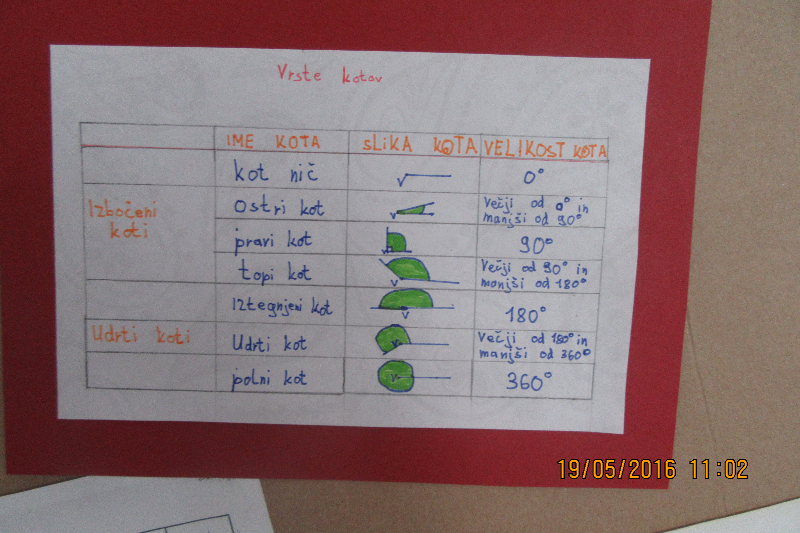 Vrste kotov
IME KOTA SLIKA KOTA VELIKOST KOTA
kot nič 0°
Izbočeni
koti
Ostri kot
Večji od 0° in
manjši od 90°
pravi kot 90°
topi kot
Večji od 90° in
manjši od 180°
Iztegnjeni kot 180°
Udrti koti
Udrti kot
Večji od 180° in
manjši od 360°
polni kot 360°
19/05/2016 11:02